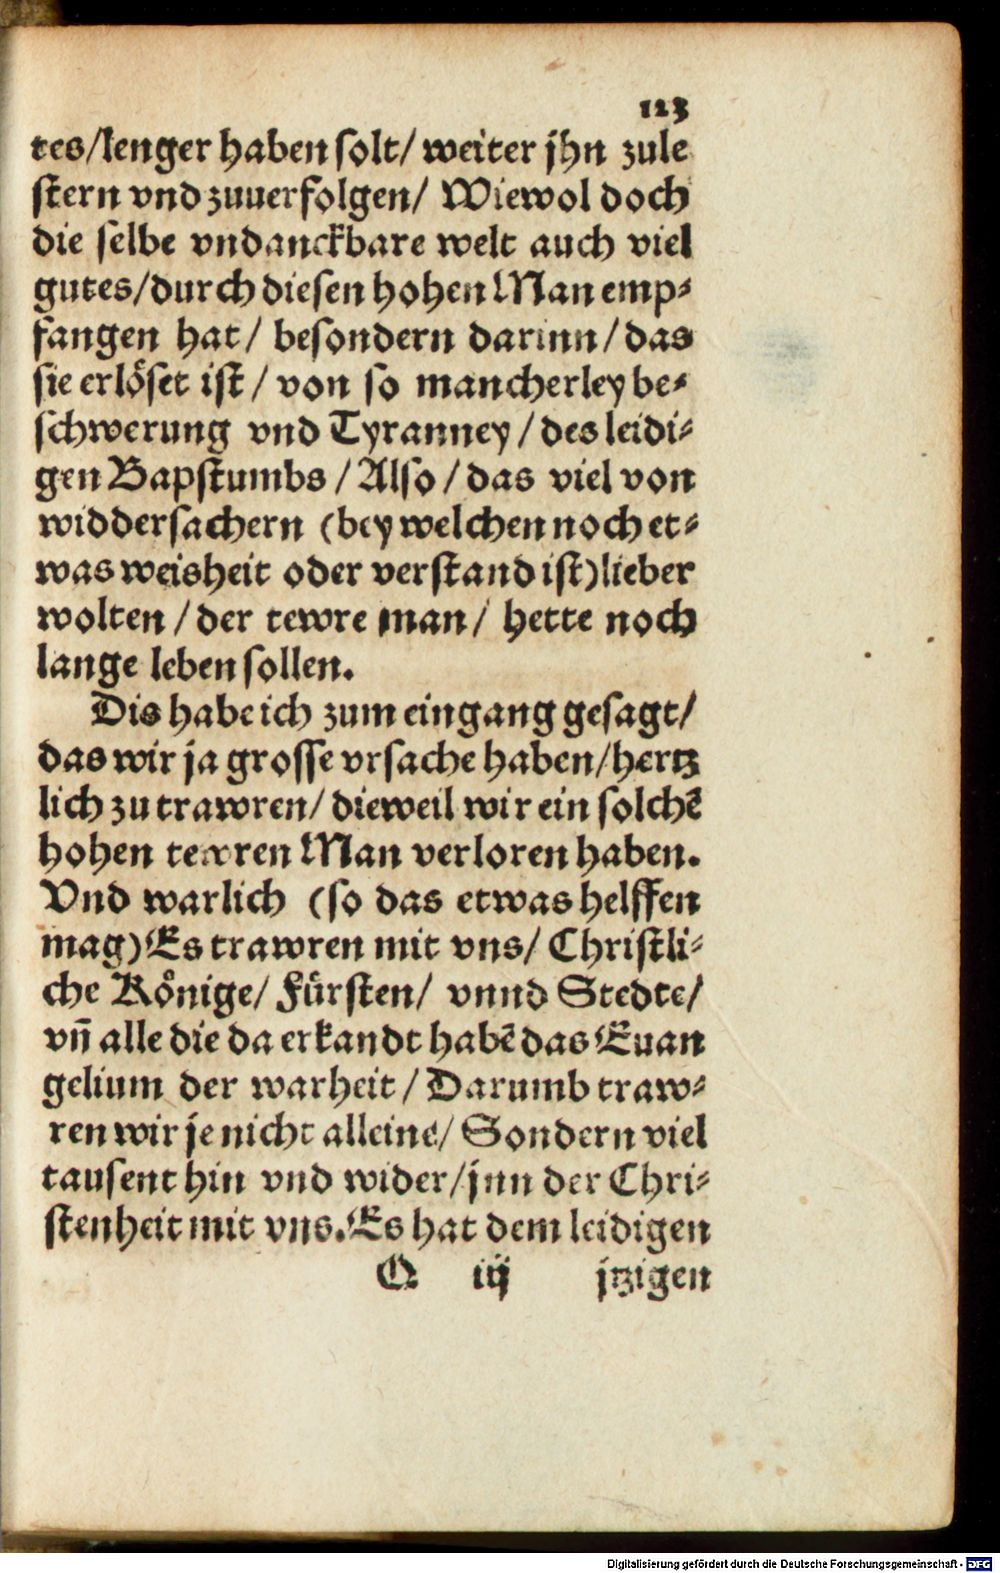 123
tes/lenger haben solt/ weiter jhn zule
stern vnd zuuerfolgen/ Wiewol doch
die selbe vndanckbare welt auch viel
gutes/durch diesen hohen Man emp⸗
fangen hat/ besondern darinn/das
sie erlöset ist/ von so mancherley be⸗
schwerung vnd Tyranney/des leidi⸗
gen Bapstumbs/Also/das viel von
widdersachern (bey welchen noch et⸗
was weisheit oder verstand ist)lieber
wolten/der tewre man/ hette noch
lange leben sollen.
Dis habe ich zum eingang gesagt/
das wir ja grosse vrsache haben/hertz
lich zu trawren/dieweil wir ein solchē
hohen tewren Man verloren haben.
Vnd warlich (so das etwas helffen
mag)Es trawren mit vns/ Christli⸗
che Könige/ Fürsten/ vnnd Stedte/
vn̄ alle die da erkandt habē das Euan
gelium der warheit/Darumb traw⸗
ren wir je nicht alleine/ Sondern viel
tausent hin vnd wider/jnn der Chri⸗
stenheit mit vns.Es hat dem leidigen
Q iij jtzigen
Digitalisierung gefördert durch die Deutsche Forschungsgemeinschaft - DFG